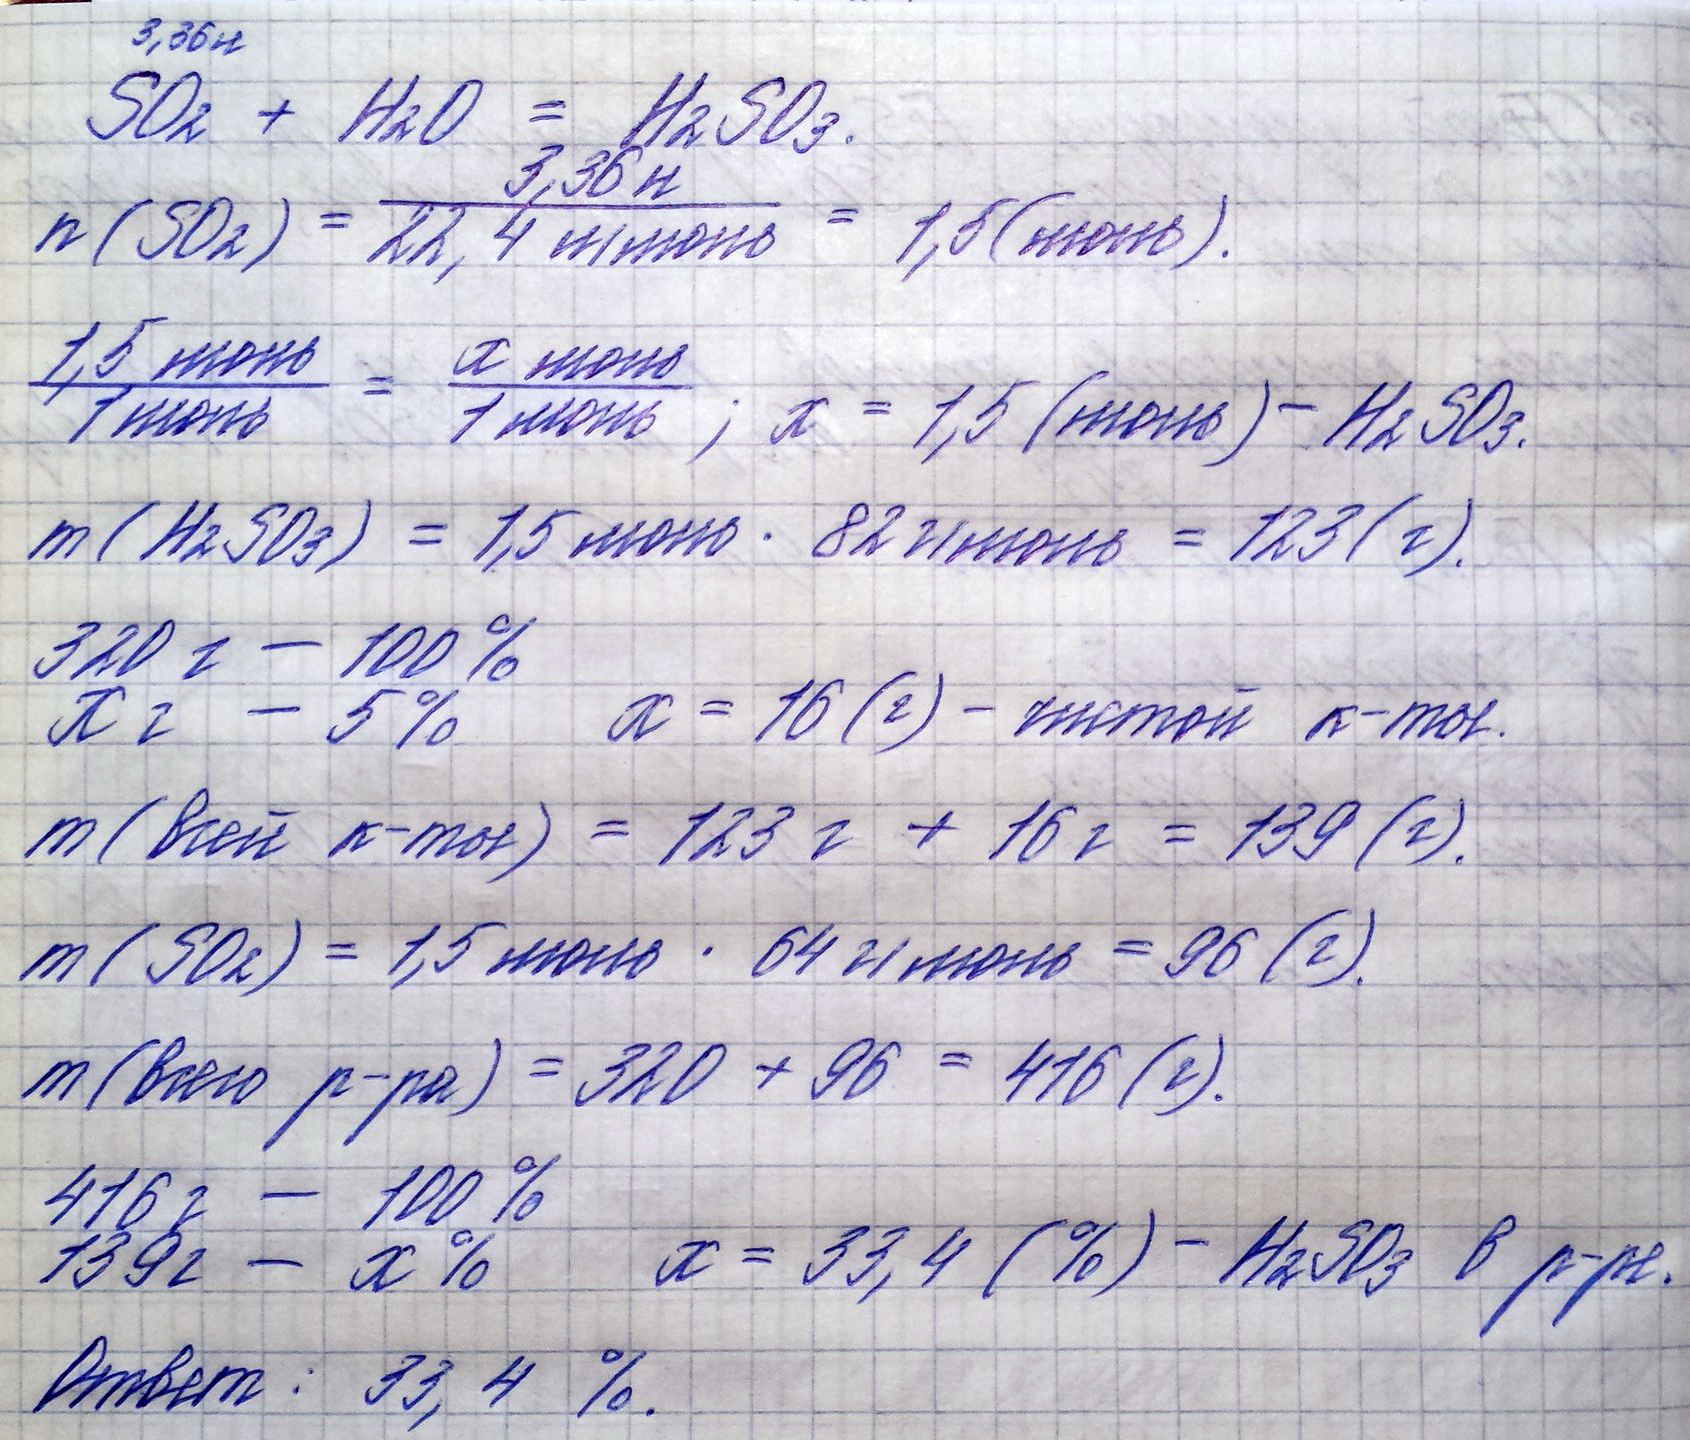 3,36 л
SO2 + H2O = H2SO3.
n (SO2) = 3,36 л / 22,4 л/моль = 1,5 (моль).
1,5 моль / 1 моль = x моль / 1 моль ; x = 1,5 (моль) – H2SO3.
m (H2SO3) = 1,5 моль · 82 г/моль = 123 (г).
320 г – 100 %
x г – 5 % x = 16 (г) – чистой к-ты.
m (всей к-ты) = 123 г + 16 г = 139 (г).
m (SO2) = 1,5 моль · 64 г/моль = 96 (г).
m (всего р-ра) = 320 + 96 = 416 (г).
416 г – 100 %
139 г – x % x = 33,4 (%) – H2SO3 в р-ре.
Ответ : 33,4 %.